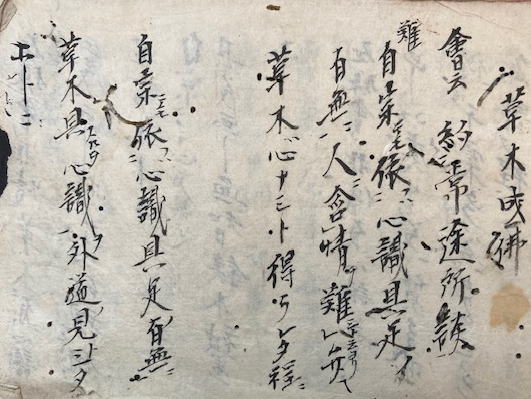 草木成佛
會云 約常途所談
難
自宗ニモ依ハ心識具足ノ
有無ニ人含情ヲ難
草木心ナニト得ラレタ程ニ
自宗ニモ依ハ心識具足有無ニ
草木具心識ヲ外道見ニシタ
ホトニ